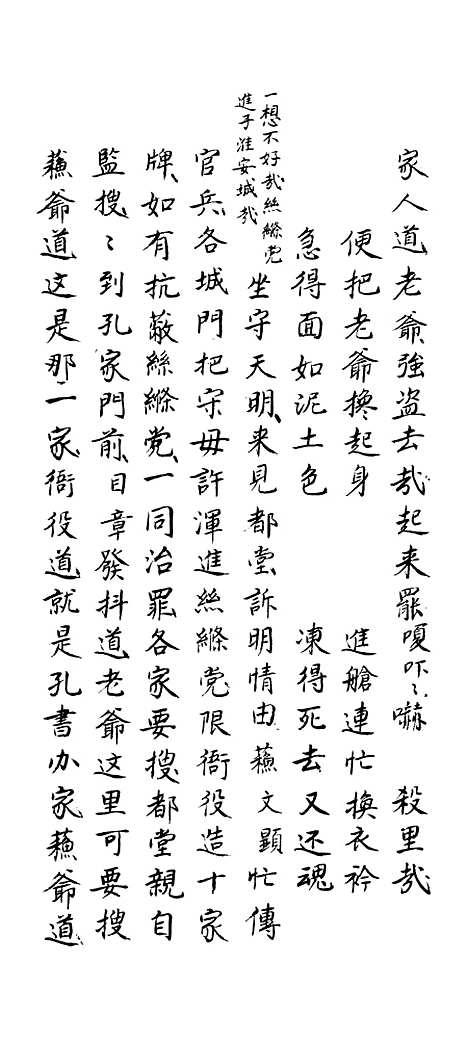 家人道老爺強盗去哉起来罷嗄吓〻嚇　殺里哉
便把老爺攙起身　進艙連忙換衣衿
急得面如泥土色　凍得死去又还魂
一想不好哉絲縧党
進子淮安城哉
坐守天明、来見都堂、訴明情由、蘓文顯忙傳
官兵、各城門把守毋許渾進絲縧党限衙役造十家
牌、如有抗蔽絲縧党、一同治罪、各家要搜、都堂親自
監搜〻到孔家門前、目章發抖道、老爺这里可要搜
蘓爺道这是那一家、衙役道、就是孔書办家蘓爺道、